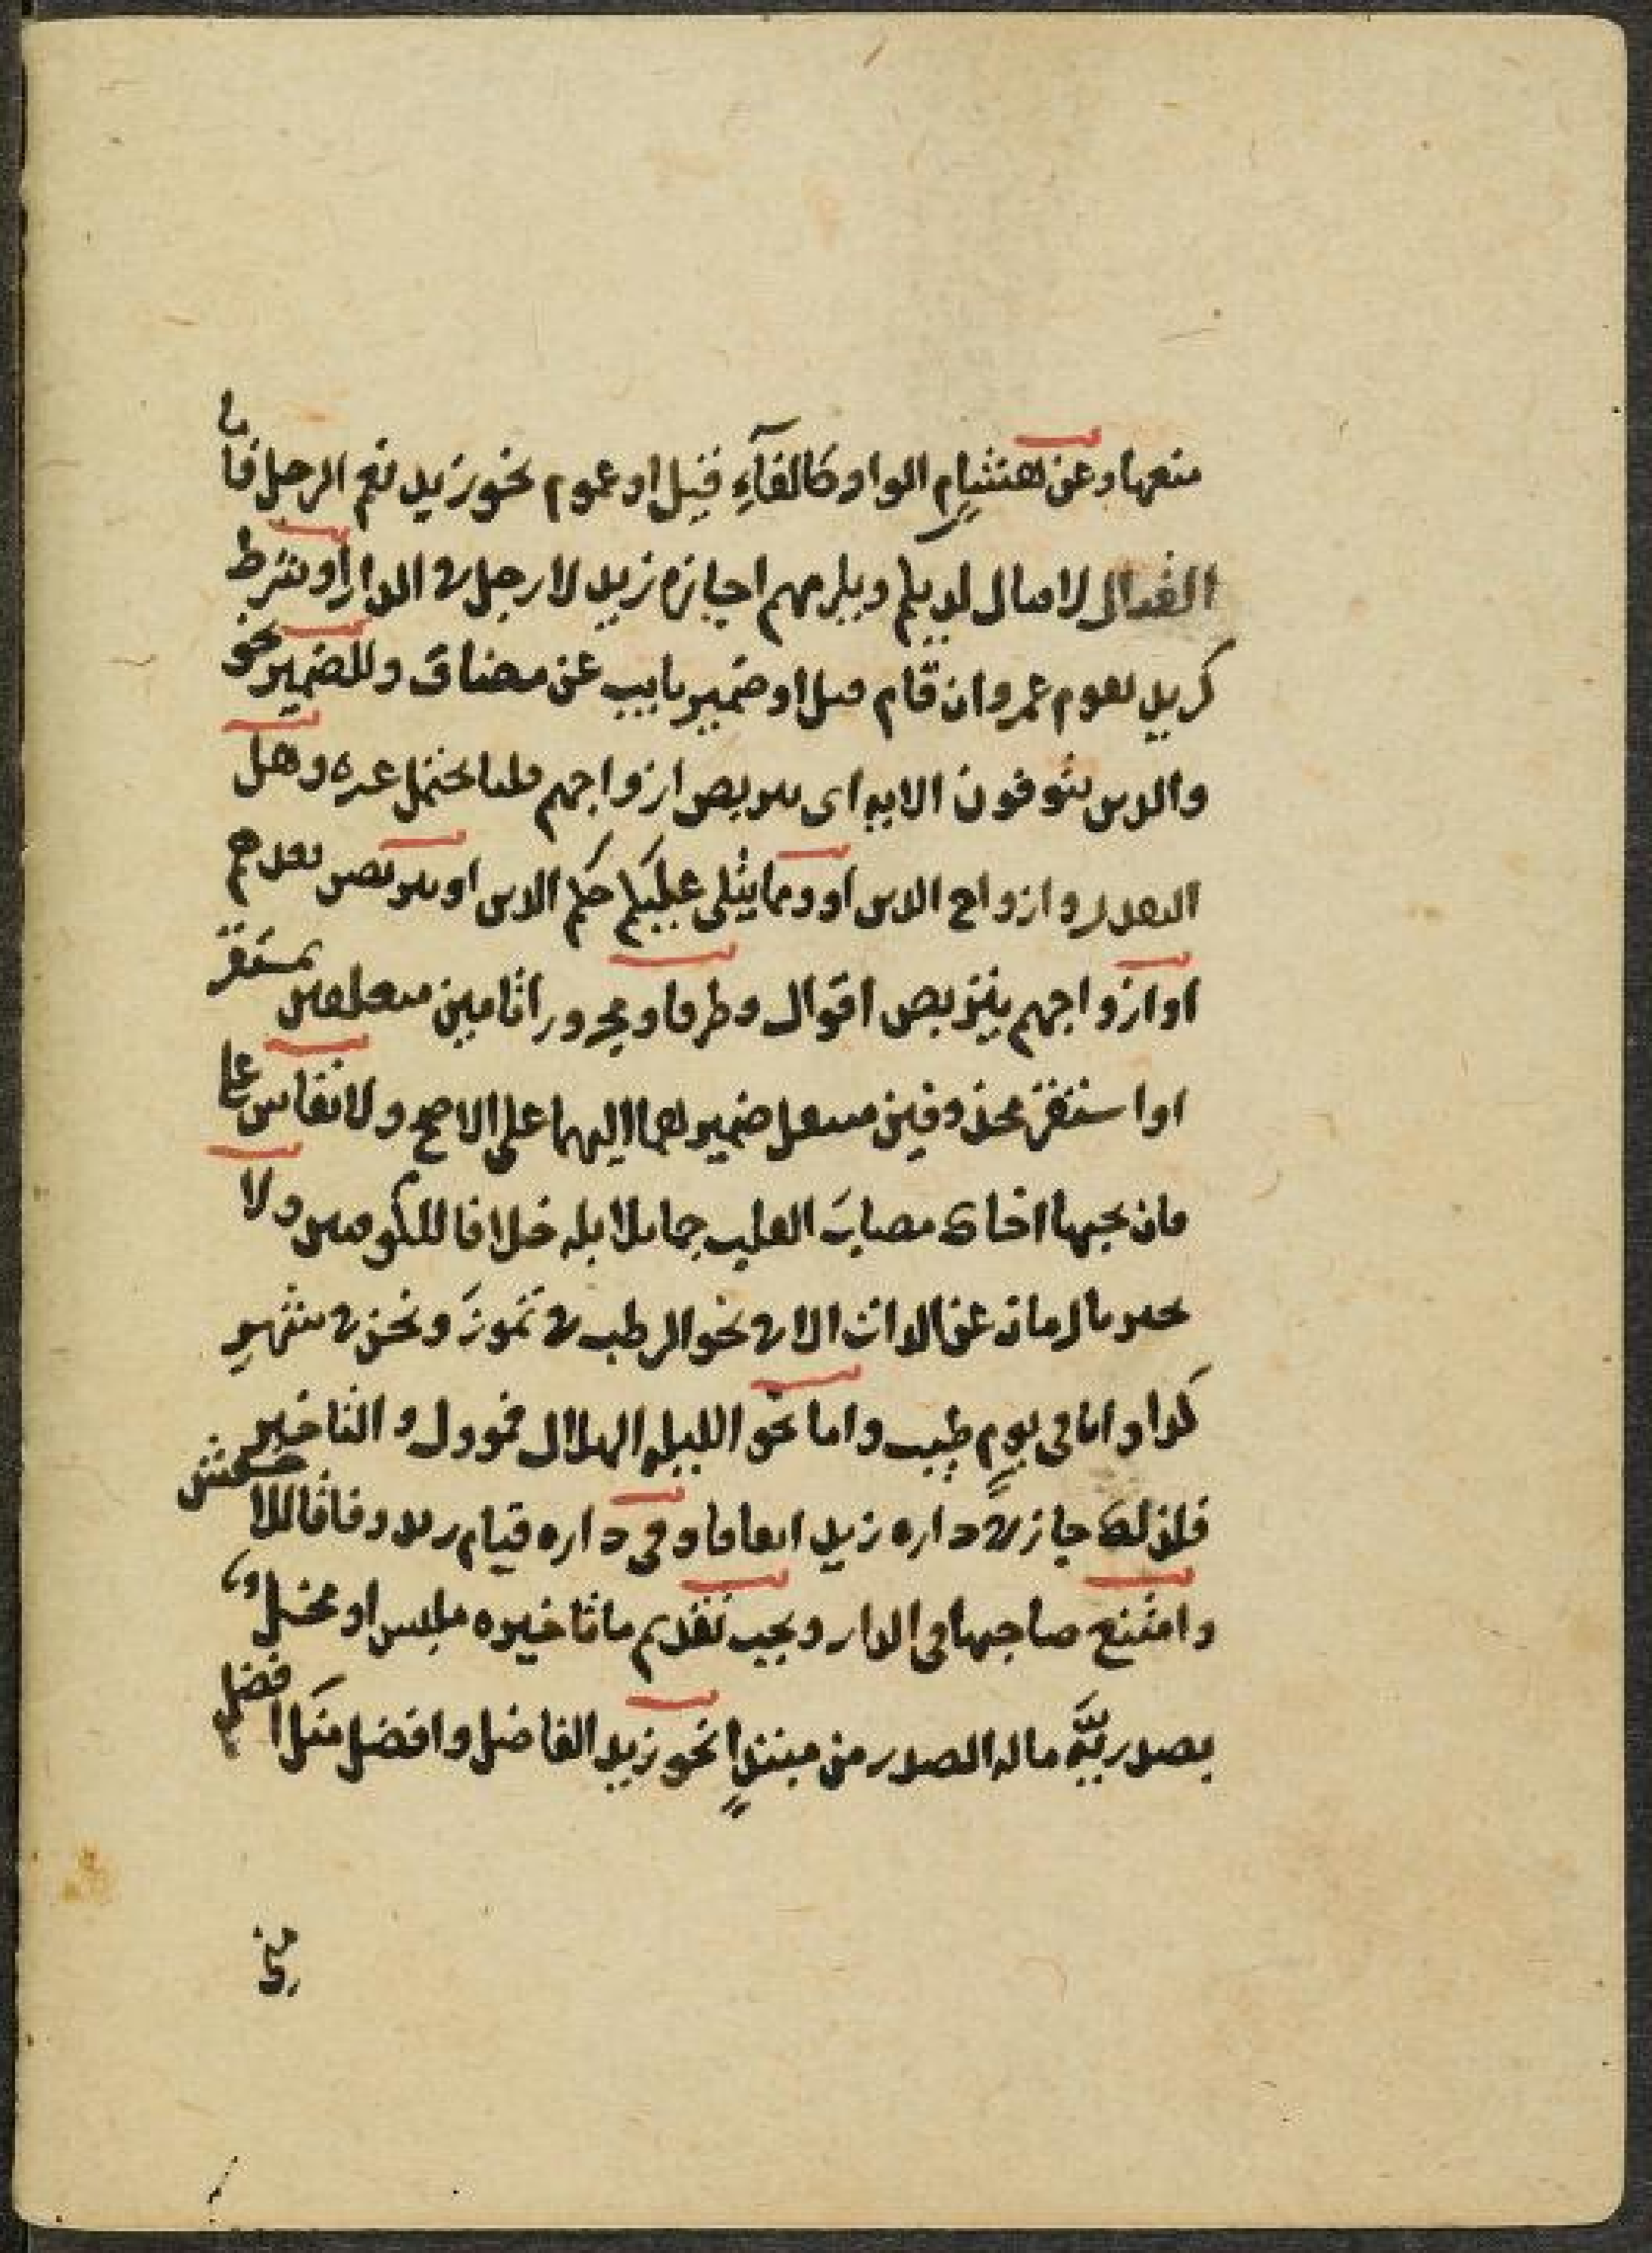 منعها وعن هشام الواو كالفآء قيل او عموم نحو زيد نعم الرجل فاما
القتال لا قتال لديكم ويلزمهم اجازه زيد لا رجل في الدار او شرط
كزيد يقوم عمرو ان قام قيل او ضمير نايب عن مضاف وللضمير نحو
والذين يتوفون الايه اى يتربص ازواجهم قلنا يحتمل غيره وهل
التقدير وازواج الذين او ومما يتلى عليكم حكم الذين او يتربص بعدهم
او ازواجهم يتربص اقوال وظرفا ومجرورا تامين متعلقين بمستقر
او استقر محذوفين منتقل ضميرهما اليهما على الاصح ولا يقاس على
فان بحبها اخاك مصاب القلب جم بلابله خلافا للكوفيين ولا
يخبر بالزمان عن الذات الا في نحو الرطب في تموز ونحن في شهر
كذا وانا في يوم طيب واما نحو الليله الهلال فموول والتاخير
فلذلك جاز في داره زيد اتفاقا وفي داره قيام زيد وفاقا للاخفش
وامتنع صاحبها في الدار ويجب تقديم ما تاخيره ملبس او مخل
بصدريّة ماله الصدر من مبتدإ نحو زيد الفاضل وافضل منك افضل
مني